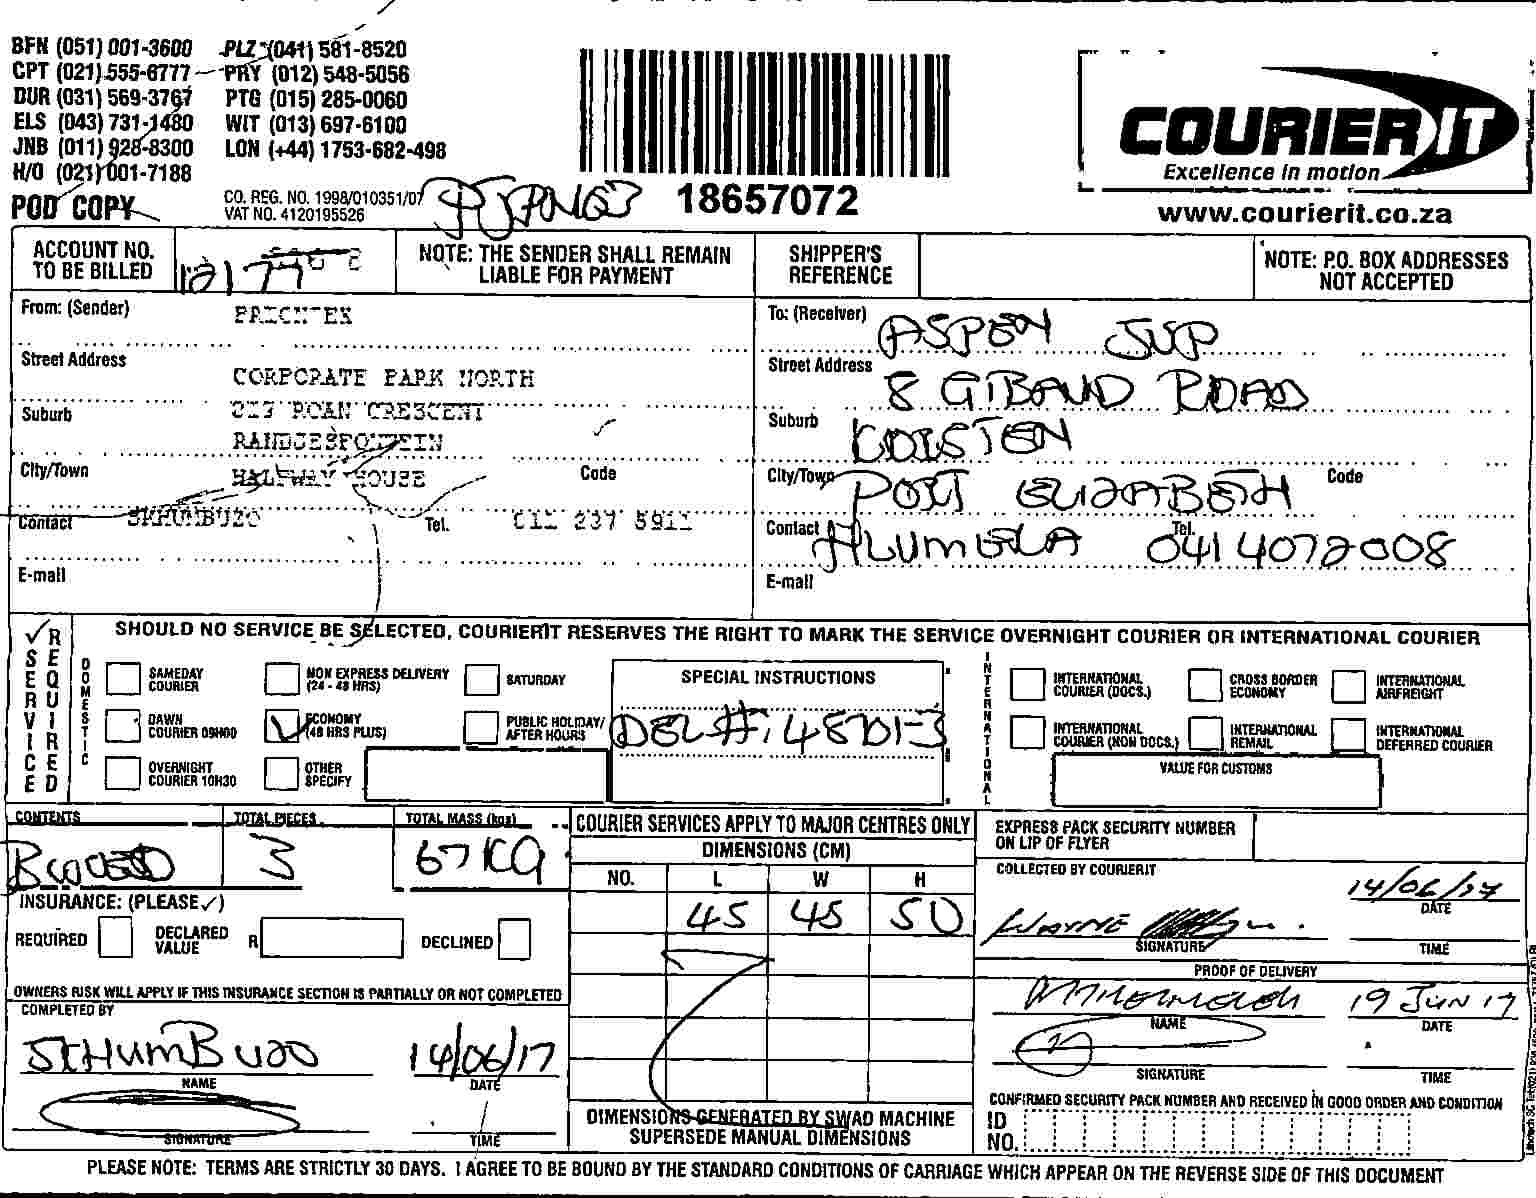 BFN (051) 001-3600 PLZ (041) 581-8520
CPT (021) 555-6777 PRY (012) 548-5056
DUR (031) 569-3767 PTG (015) 285-0060
ELS (043) 731-1480 WIT (013) 697-6100
JNB (011) 928-8300 LON (+44) 1753-682-498
H/O (021) 001-7188
POD COPY
CO. REG. NO. 1998/010351/07
VAT NO. 4120195526
18657072
COURIER IT
Excellence in motion
www.courierit.co.za
ACCOUNT NO. TO BE BILLED
12177
NOTE: THE SENDER SHALL REMAIN LIABLE FOR PAYMENT
SHIPPER'S REFERENCE
NOTE: P.O. BOX ADDRESSES NOT ACCEPTED
From: (Sender)
Street Address CORPORATE PARK NORTH
Suburb 229 ROAN CRESCENT
RANDJESFONTEIN
City/Town HALFWAY HOUSE Code
Contact SKHUMBUZO Tel. 011 237 5911
E-mail
To: (Receiver) ASPEN
Street Address 8 GIBAUD ROAD
Suburb KORSTEN
City/Town PORT ELIZABETH Code
Contact Tel. 0414072008
E-mail
SERVICE REQUIRED
SHOULD NO SERVICE BE SELECTED, COURIERIT RESERVES THE RIGHT TO MARK THE SERVICE OVERNIGHT COURIER OR INTERNATIONAL COURIER
DOMESTIC
SAMEDAY COURIER
NON EXPRESS DELIVERY (24 - 48 HRS)
SATURDAY
DAWN COURIER 09H00
ECONOMY (48 HRS PLUS)
PUBLIC HOLIDAY/ AFTER HOURS
OVERNIGHT COURIER 10H30
OTHER SPECIFY
SPECIAL INSTRUCTIONS
INTERNATIONAL
INTERNATIONAL COURIER (DOCS.)
CROSS BORDER ECONOMY
INTERNATIONAL AIRFREIGHT
INTERNATIONAL COURIER (NON DOCS.)
INTERNATIONAL REMAIL
INTERNATIONAL DEFERRED COURIER
VALUE FOR CUSTOMS
CONTENTS
TOTAL PIECES 3
TOTAL MASS (kgs) 67KG
INSURANCE: (PLEASE ✓)
REQUIRED DECLARED VALUE R DECLINED
OWNERS RISK WILL APPLY IF THIS INSURANCE SECTION IS PARTIALLY OR NOT COMPLETED
COMPLETED BY
SKHUMBUZO 14/06/17
NAME DATE
SIGNATURE TIME
COURIER SERVICES APPLY TO MAJOR CENTRES ONLY
DIMENSIONS (CM)
NO. L W H
45 45 50
DIMENSIONS GENERATED BY SWAD MACHINE
SUPERSEDE MANUAL DIMENSIONS
EXPRESS PACK SECURITY NUMBER ON LIP OF FLYER
COLLECTED BY COURIERIT
WAYNE 14/06/17
SIGNATURE DATE
TIME
PROOF OF DELIVERY
19 JUN 17
NAME DATE
SIGNATURE TIME
CONFIRMED SECURITY PACK NUMBER AND RECEIVED IN GOOD ORDER AND CONDITION
ID NO.
PLEASE NOTE: TERMS ARE STRICTLY 30 DAYS. I AGREE TO BE BOUND BY THE STANDARD CONDITIONS OF CARRIAGE WHICH APPEAR ON THE REVERSE SIDE OF THIS DOCUMENT